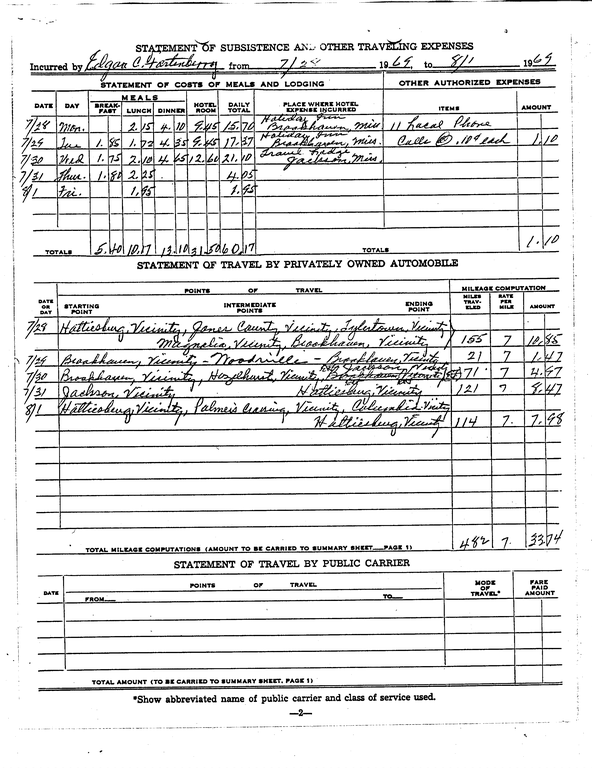 STATEMENT OF SUBSISTENCE AND OTHER TRAVELING EXPENSES
Incurred by Edgar C. Fortenberry from 7/28 1969, to 8/1 1969
STATEMENT OF COSTS OF MEALS AND LODGING OTHER AUTHORIZED EXPENSES
DATE DAY MEALS BREAK-FAST LUNCH DINNER HOTEL ROOM DAILY TOTAL PLACE WHERE HOTEL EXPENSE INCURRED ITEMS AMOUNT
7/28 Mon. 2.15 4.10 9.45 15.70 Holiday Inn Brookhaven, Miss. 11 Local Phone
7/29 Tue 1.85 1.72 4.35 9.45 17.37 Holiday Inn Brookhaven, Miss. Calls @ .10¢ each 1.10
7/30 Wed 1.75 2.10 4.65 12.60 21.10 Travel Lodge Jackson, Miss.
7/31 Thur. 1.80 2.25 4.05
8/1 Fri. 1.95 1.95
TOTALS 5.40 10.17 13.10 31.50 60.17 TOTALS 1.10
STATEMENT OF TRAVEL BY PRIVATELY OWNED AUTOMOBILE
DATE OR DAY POINTS OF TRAVEL MILEAGE COMPUTATION
STARTING POINT INTERMEDIATE POINTS ENDING POINT MILES TRAV-ELED RATE PER MILE AMOUNT
7/28 Hattiesburg, Vicinity, Jones County Vicinity, Tylertown, Vicinity
Magnolia, Vicinity, Brookhaven, Vicinity 155 7 10.85
7/29 Brookhaven, Vicinity - Woodville - Brookhaven, Vicinity 21 7 1.47
7/30 Brookhaven, Vicinity, Hazelhurst, Vicinity, Jackson, Vicinity 71 7 4.97
7/31 Jackson, Vicinity Hattiesburg, Vicinity 121 7 8.47
8/1 Hattiesburg, Vicinity, Palmers Crossing, Vicinity, Columbia Vicinity
Hattiesburg, Vicinity 114 7. 7.98
TOTAL MILEAGE COMPUTATIONS (AMOUNT TO BE CARRIED TO SUMMARY SHEET PAGE 1) 482 7. 33.74
STATEMENT OF TRAVEL BY PUBLIC CARRIER
DATE POINTS OF TRAVEL MODE OF TRAVEL* FARE PAID AMOUNT
FROM TO
TOTAL AMOUNT (TO BE CARRIED TO SUMMARY SHEET, PAGE 1)
*Show abbreviated name of public carrier and class of service used.
—2—